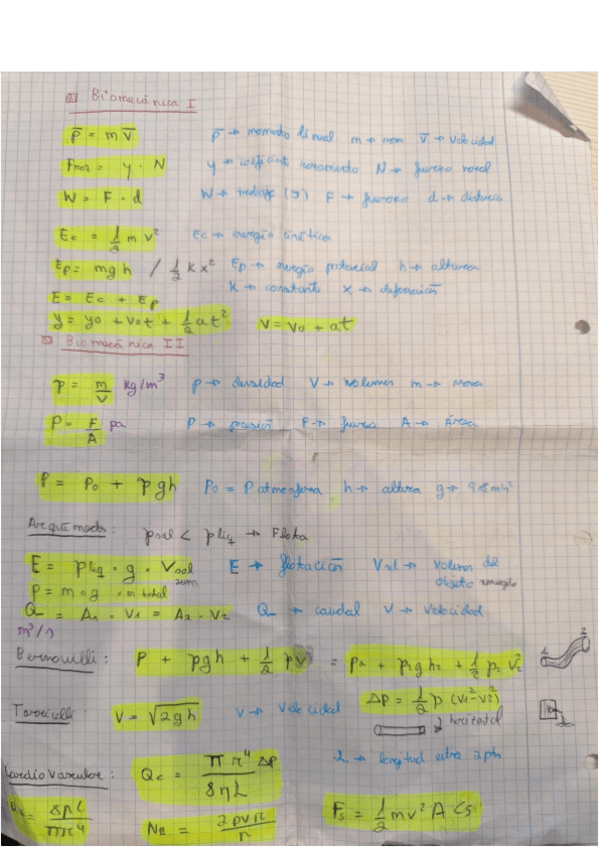 Biomecánica I
p̄ = m v̄ p̄ → momento lineal m → masa v̄ → velocidad
Froz = y · N y → coeficiente rozamiento N → fuerza
W = F · d W → trabajo (J) F → fuerza d → distancia
Ec = 1/2 m v² Ec → energía cinética
Ep = mgh / 1/2 k x² Ep → energía potencial h → altura
k → constante x → deformación
E = Ec + Ep
y = y0 + v0t + 1/2 at² v = v0 + at
Biomecánica II
p = m/V kg/m³ p → densidad V → Volumen m → masa
P = F/A pa P → presión F → fuerza A → Área
P = P0 + pgh P0 = P atmosfera h → altura g → 9'8 m/s²
Arquímedes: psol < pliq → Flota
E = pliq · g · Vsol sum E → flotación Vsol → Volumen del
objeto sumergido
P = m · g → m total
Q = A1 · V1 = A2 · V2 Q → caudal V → Velocidad
m³/s
Bernouilli: P + pgh + 1/2 pv² = P2 + p2gh2 + 1/2 p2 v2²
ΔP = 1/2 p (v1² - v2²)
Torricelli: V = √2gh V → Velocidad horizontal
L → longitud entre 2 ptos
Cardio Vascular: Qc = πr⁴ ΔP / 8ηL
= 8ηL / πr⁴ NR = 2pvr / n Fs = 1/2 mv² A Cs